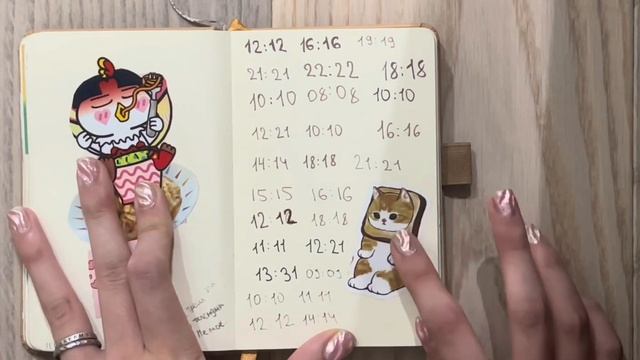 12:12 16:16 19:19
21:21 22:22 18:18
10:10 08:08 10:10
12:21 10:10 16:16
14:14 18:18 21:21
15:15 16:16
12:12 18:18
11:11 12:21
13:31 09:09
10:10 11:11
12 12 14:14